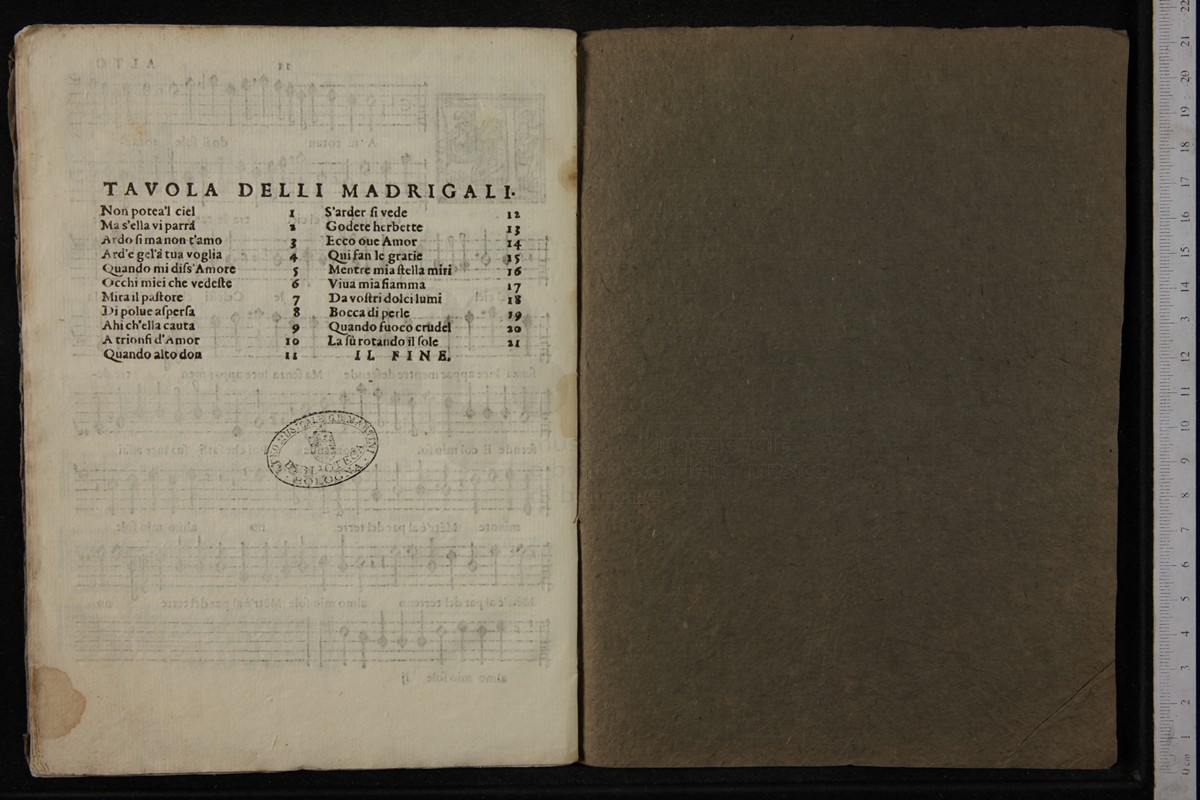 TAVOLA DELLI MADRIGALI.
Non potea'l ciel 1
Ma s'ella vi parrà 2
Ardo si ma non t'amo 3
Ard'e gel'à tua voglia 4
Quando mi diſs'Amore 5
Occhi miei che vedeſte 6
Mira il paſtore 7
Di polue aſperſa 8
Ahi ch'ella cauta 9
A trionfi d'Amor 10
Quando alto don 11
S'arder ſi vede 12
Godete herbette 13
Ecco oue Amor 14
Qui fan le gratie 15
Mentre mia ſtella miri 16
Viua mia fiamma 17
Da voſtri dolci lumi 18
Bocca di perle 19
Quando fuoco crudel 20
La sù rotando il ſole 21
IL FINE.
MUSICALE G.B. MARTINI
BIBLIOTECA
BOLOGNA